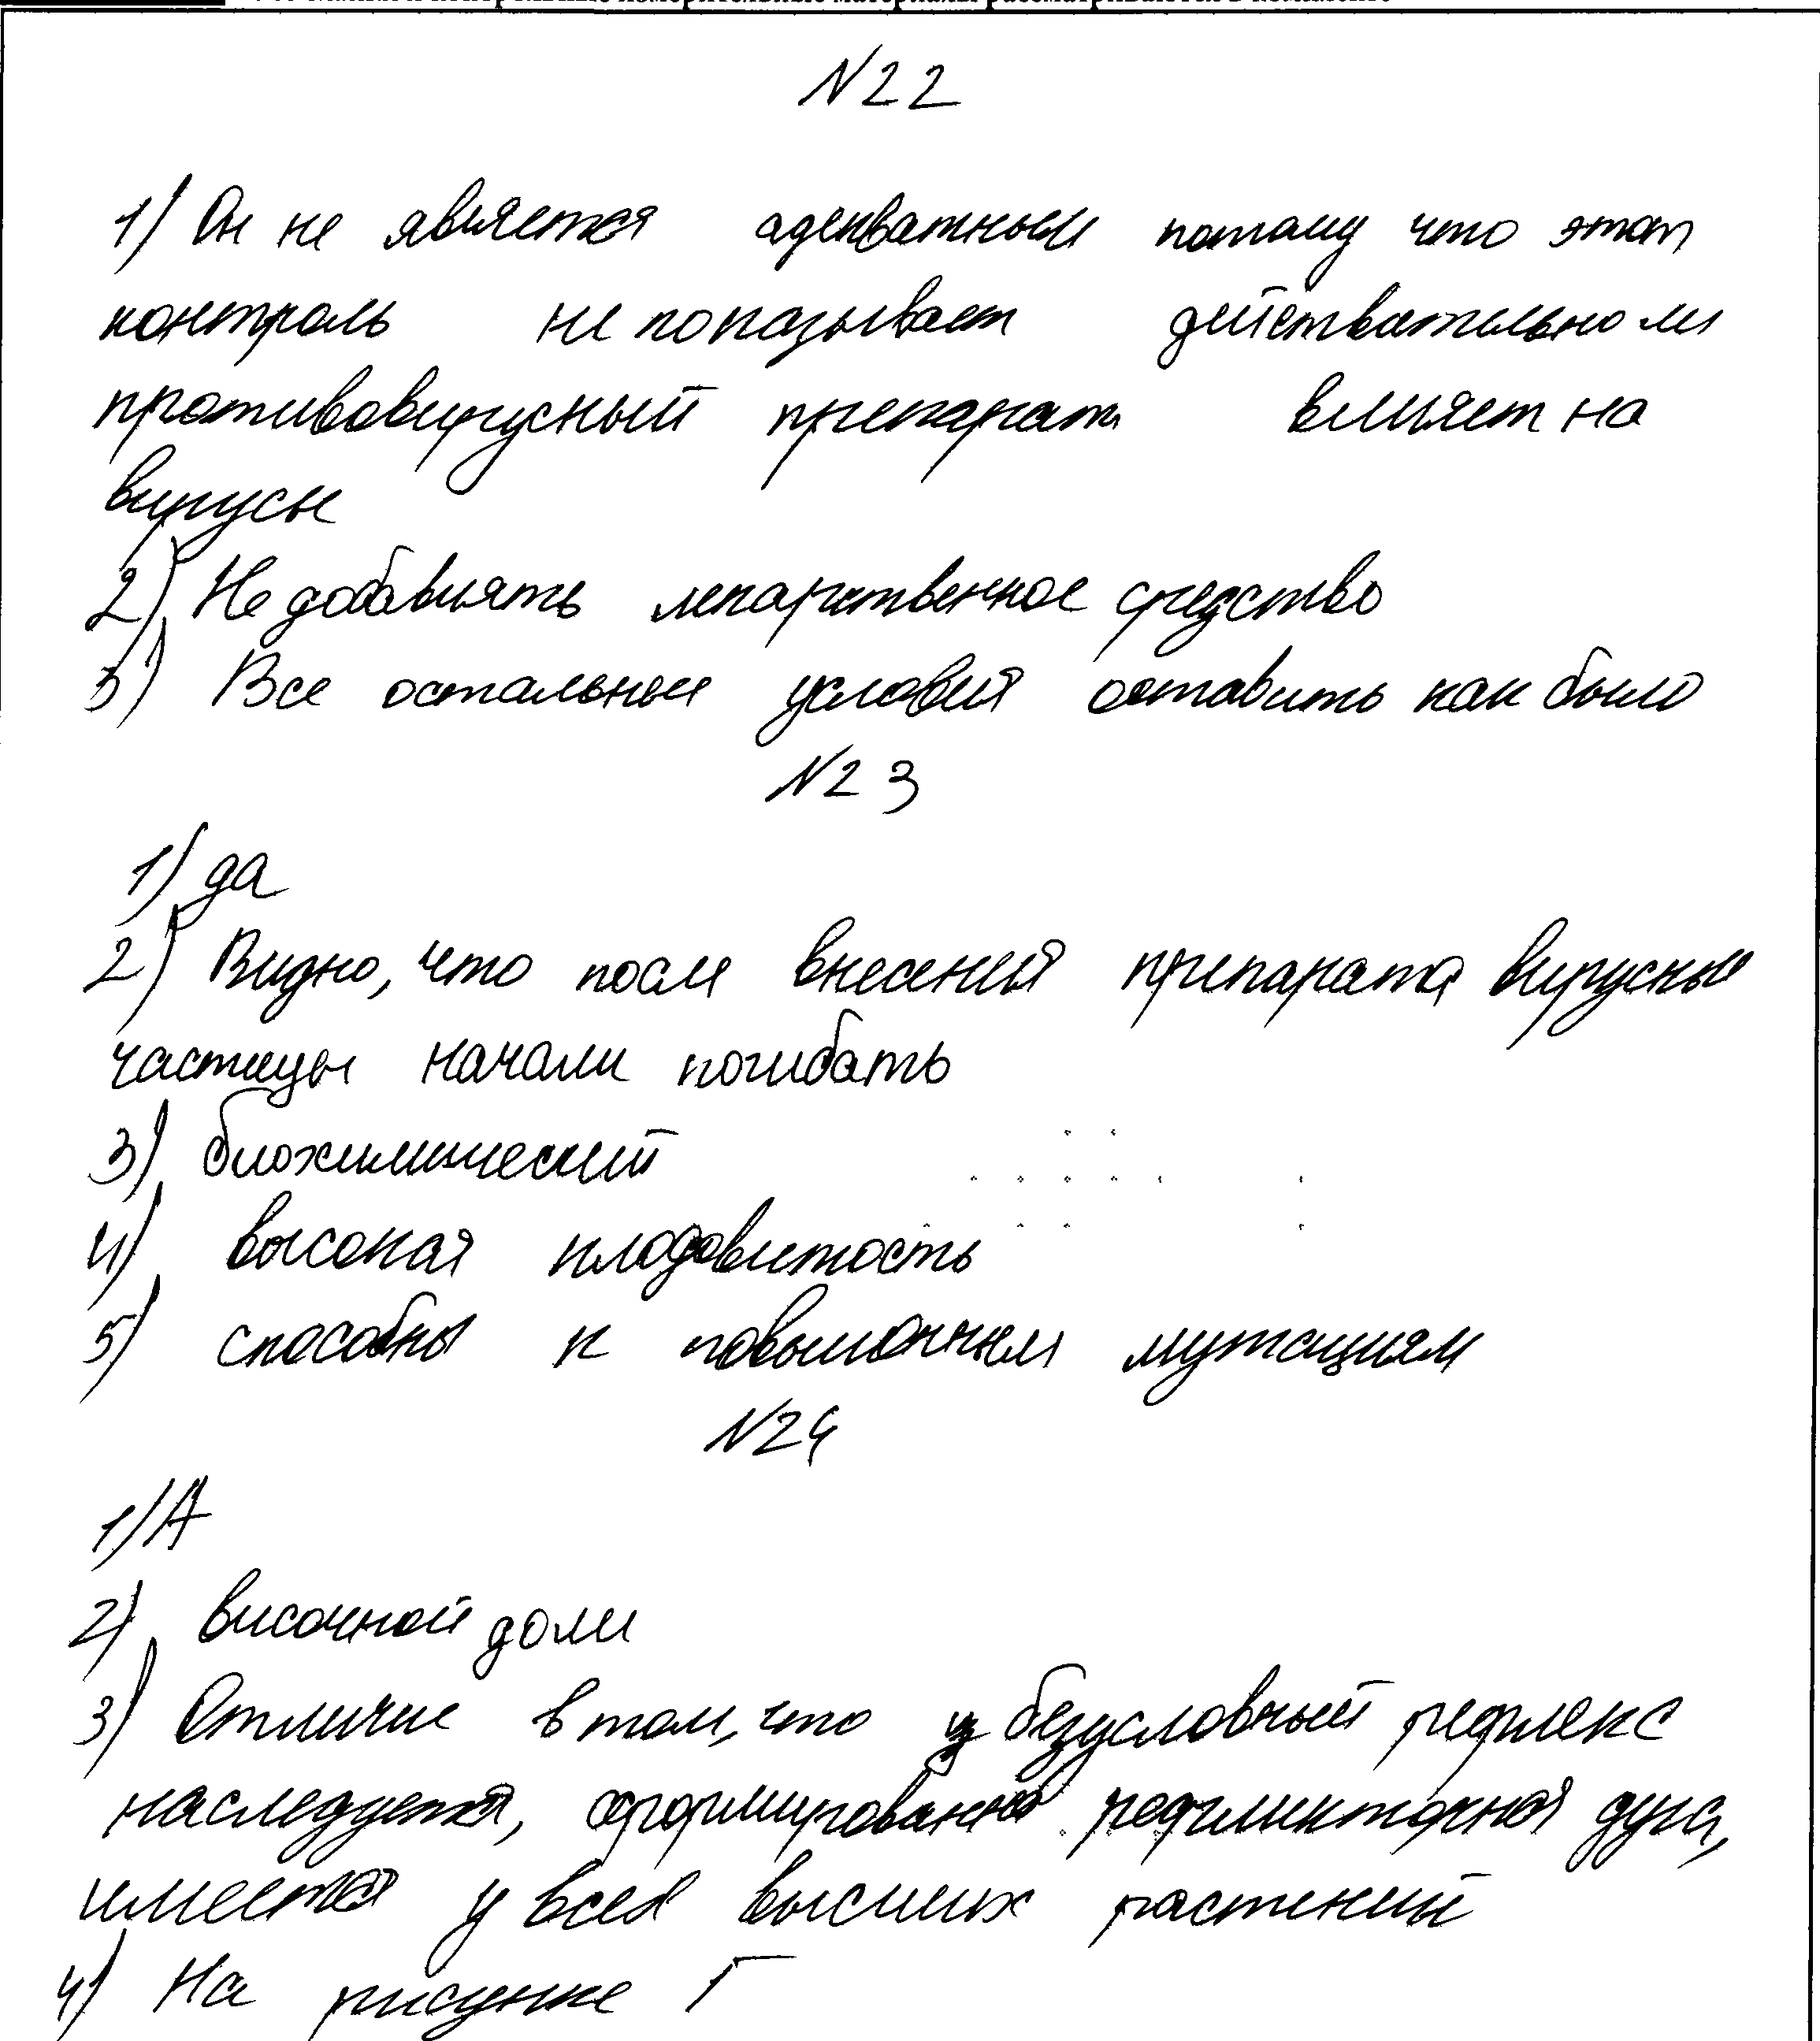 N22
1) Он не является адекватным потому что этот
контроль не показывает действительно ли
противовирусный препарат влияет на
вирусы
2) Не добавлять лекарственное средство
3) Все остальные условия оставить как было
N23
1) да
2) Видно, что после внесения препарата вирусные
частицы начали погибать
3) биохимический
4) высокая плодовитость
5) способны к повышенным мутациям
N24
1) А
2) височной доли
3) Отличие в том, что безусловный рефлекс
наследуется, сформирована рефлекторная дуга,
имеется у всех высших растений
4) На рисунке Г